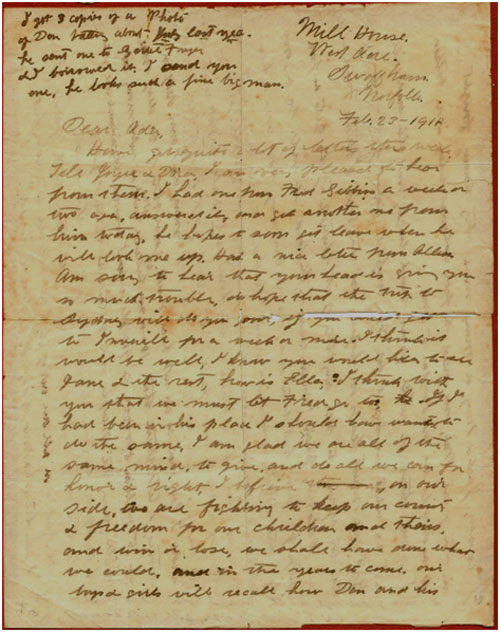 I got 3 copies of a Photo
of Den taken about July last year.
he sent one to
I borrowed it. I send you
one, he looks such a fine big man.
Mill House.
West Acre.
Swaffham.
Norfolk.
Feb. 23-191
Dear Ader,
Have got quite a lot of letters this week
Tell Joyce & Dora I am very pleased to hear
from them. I had one from Fred Gibbins a week or
two ago, answered it, and got another one from
him today, he hopes to soon get leave when he
will look me up. Had a nice letter from Allen
Am sorry to hear that your head is giving you
so much trouble, do hope that the trip to
Sydney will do you good, if you could go
to for a week or more. I think it
would be well, I know you would like to see
Jane & the rest, how is Ella. I think with
you that we must let Fred go too, if I
had been in his place I should have wanted to
do the same, I am glad we are all of the
same mind, to give, and do all we can for
honor & right, I believe on our
side, we are fighting to keep our country
& freedom for our children and theirs,
and win or lose, we shall have done what
we could, and in the years to come, our
boys & girls will recall how Den and his